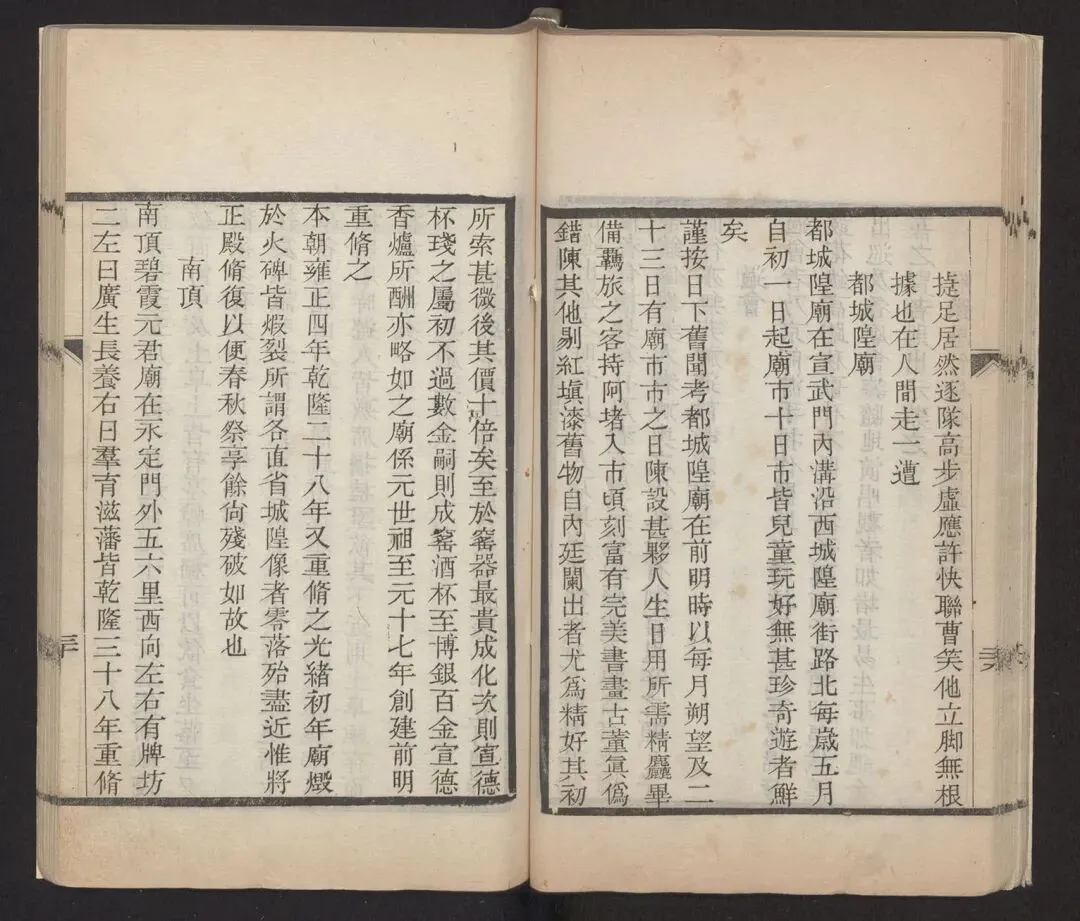 㨗足居然逐隊高步虛應許快聯曹笑他立脚無根
據也在人間走一遭
都城隍廟
都城隍廟在宣武門內溝沿西城隍廟街路北每歲五月
自初一日起廟市十日市皆兒童玩好無甚珍奇遊者鮮
矣
謹按日下舊聞考都城隍廟在前明時以每月朔望及二
十三日有廟市市之日陳設甚夥人生日用所需精麤畢
備羈旅之客持阿堵入市頃刻富有完美書畫古董眞僞
錯陳其他剔紅塡漆舊物自內廷闌出者尤爲精好其初
所索甚微後其價十倍矣至於窰器最貴成化次則宣德
杯琖之屬初不過數金嗣則成窰酒杯至博銀百金宣德
香爐所酬亦略如之廟係元世祖至元十七年創建前明
重脩之
本朝雍正四年乾隆二十八年又重脩之光緒初年廟燬
於火碑皆煆裂所謂各直省城隍像者零落殆盡近惟將
正殿脩復以便春秋祭享餘尙殘破如故也
南頂
南頂碧霞元君廟在永定門外五六里西向左右有牌坊
二左曰廣生長養右曰羣育滋藩皆乾隆三十八年重脩